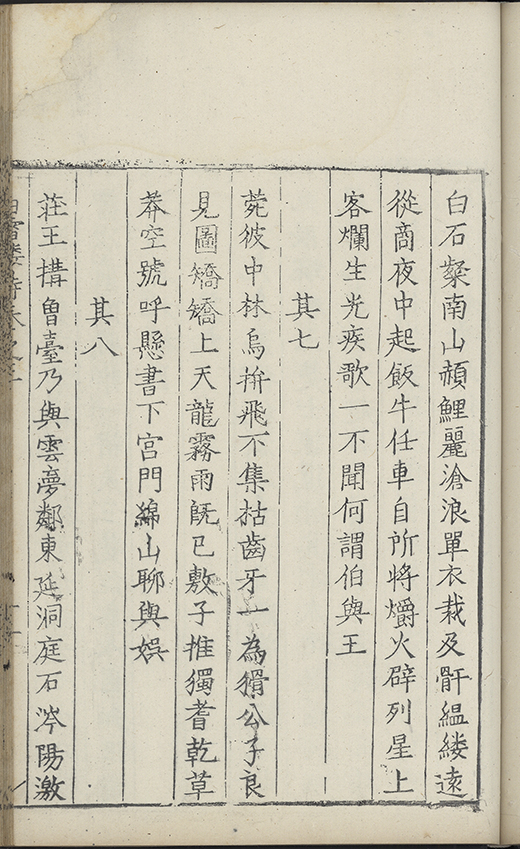 白石粲南山頳鯉麗滄浪單衣裁及骭緼縷遠
從商夜中起飯牛任車自所將爝火辟列星上
客爛生光疾歌一不聞何謂伯與王
其七
菀彼中林烏拚飛不集枯齒牙一為猾公子良
見圖矯矯上天龍霧雨旣已敷子推獨耆乾草
莽空號呼懸書下宮門綿山聊與娛
其八
莊王搆魯臺乃與雲夢鄰東延洞庭石涔陽激